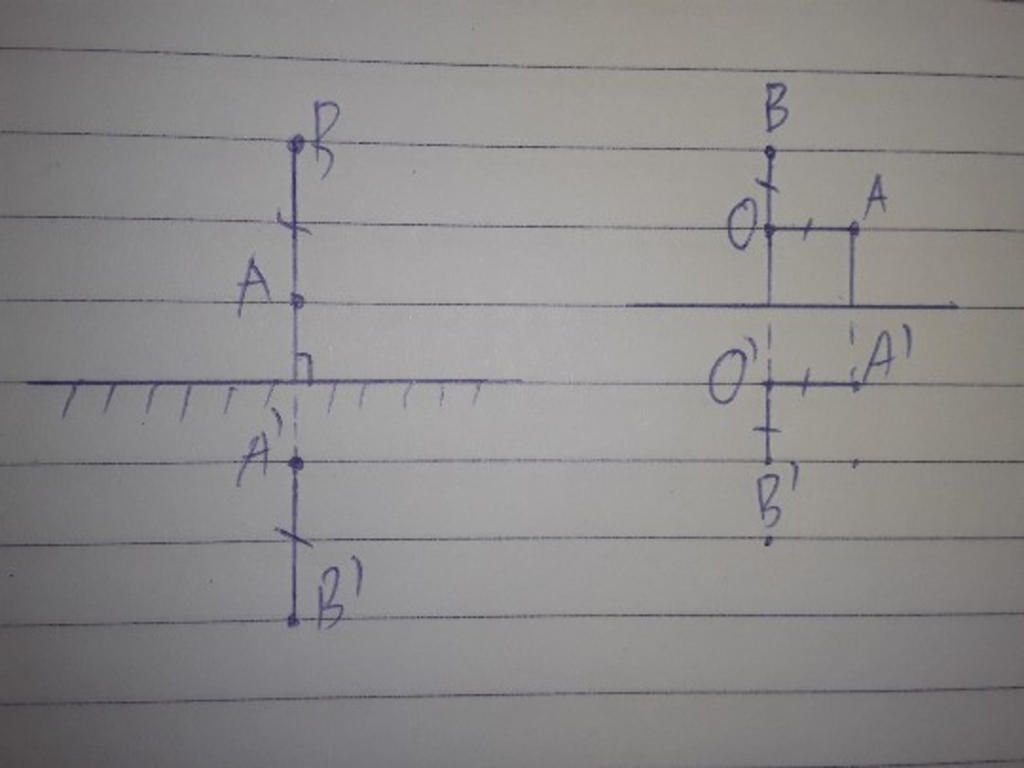 B
A
A'
B'
B
O
A
O'
A'
B'